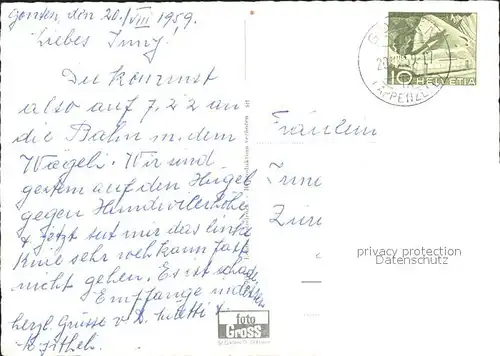 Gonten, den 20./VIII 1959.
Liebes Irmy!
Du kommst
also auf 7,22 an
die Bahn m. dem
Wägeli. Wir sind
gestern auf den Hügel
gegen Hundwilerhöhe
& jetzt tut mir das linke
Knie sehr weh kann fast
nicht gehen. Es ist schade
Empfange indessen
herzl. Grüsse v. D.
HELVETIA
10
APPENZELL
Fräulein
Irme
Züri
privacy protection
Datenschutz
Reproduktion verboten
foto
Gross